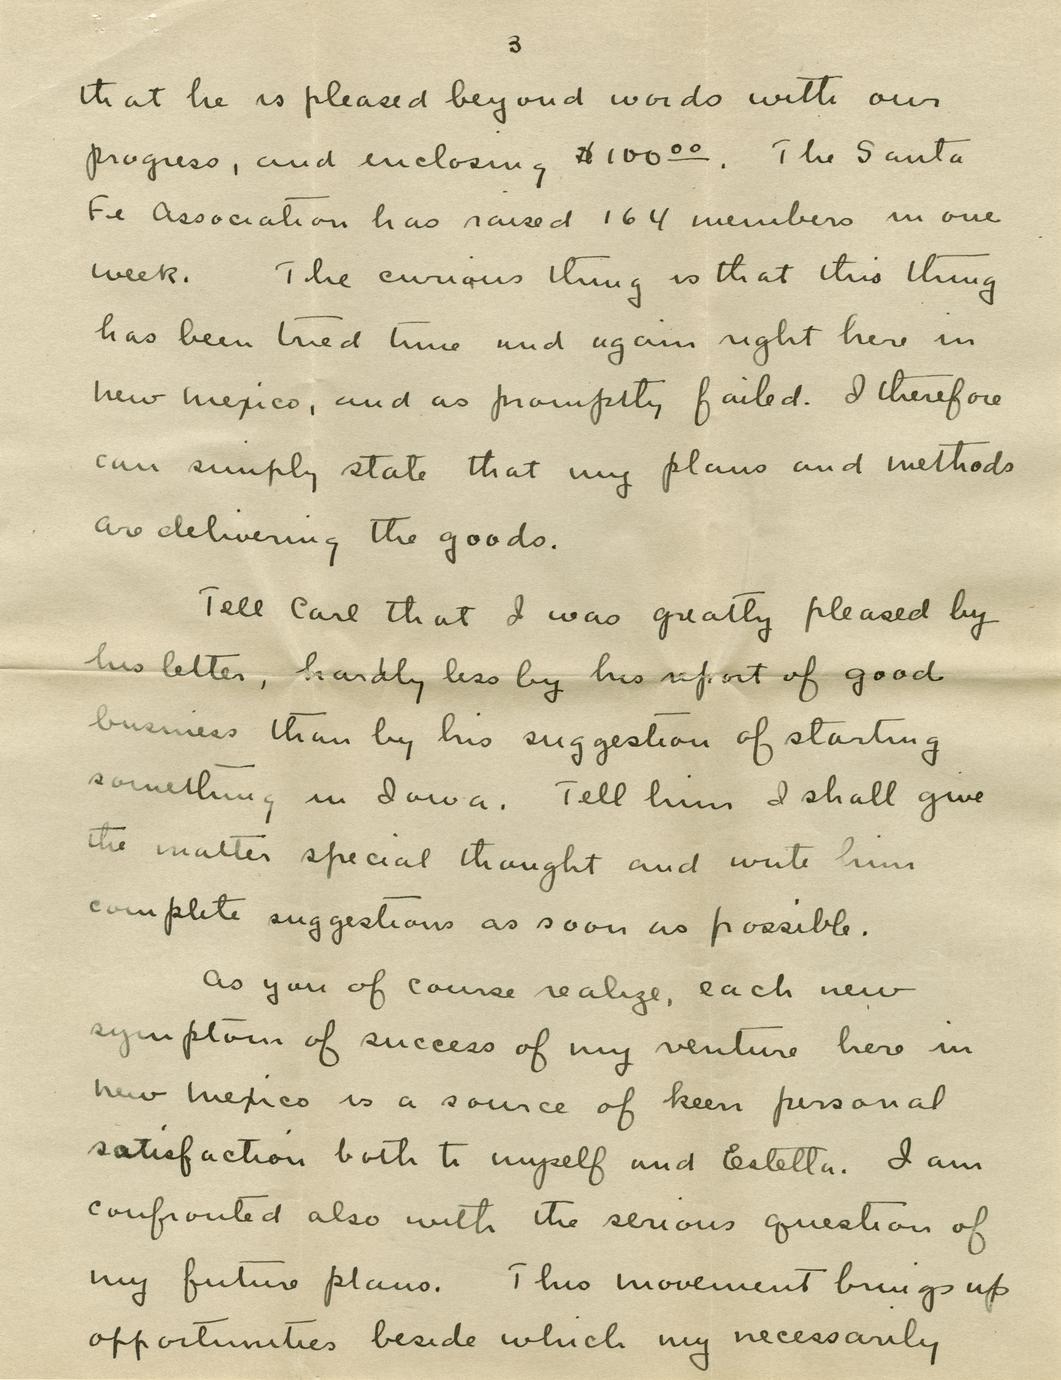 3
that he is pleased beyond words with our
progress, and enclosing $100.00. The Santa
Fe Association has raised 164 members in one
week. The curious thing is that this thing
has been tried time and again right here in
new mexico, and as promptly failed. I therefore
can simply state that my plans and methods
are delivering the goods.
Tell Carl that I was greatly pleased by
his letter, hardly less by his report of good
business than by his suggestion of starting
something in Iowa. Tell him I shall give
the matter special thought and write him
complete suggestions as soon as possible.
As you of course realize, each new
symptom of success of my venture here in
new mexico is a source of keen personal
satisfaction both to myself and Estella. I am
confronted also with the serious question of
my future plans. This movement brings up
opportunities beside which my necessarily